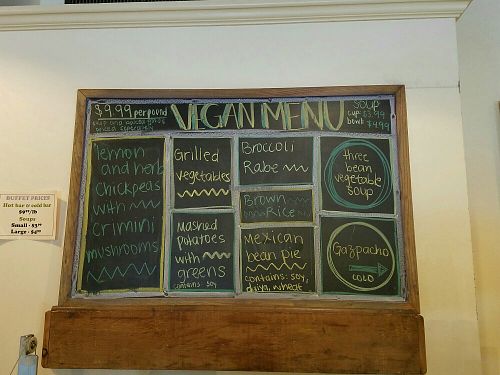 $9.99 per pound
VEGAN MENU
soup
cup $3.99
bowl $4.99
lemon
and herb
chickpeas
with
crimini
mushrooms
Grilled
vegetables
Mashed
Potatoes
with
greens
contains: soy
Broccoli
Rabe
Brown
Rice
Mexican
bean pie
contains: soy,
daiya, wheat
three
bean
vegetable
soup
Gazpacho
COLD
BUFFET PRICES
Hot bar & cold bar
$9.99/lb
Soups
Small - $3.99
Large - $4.99